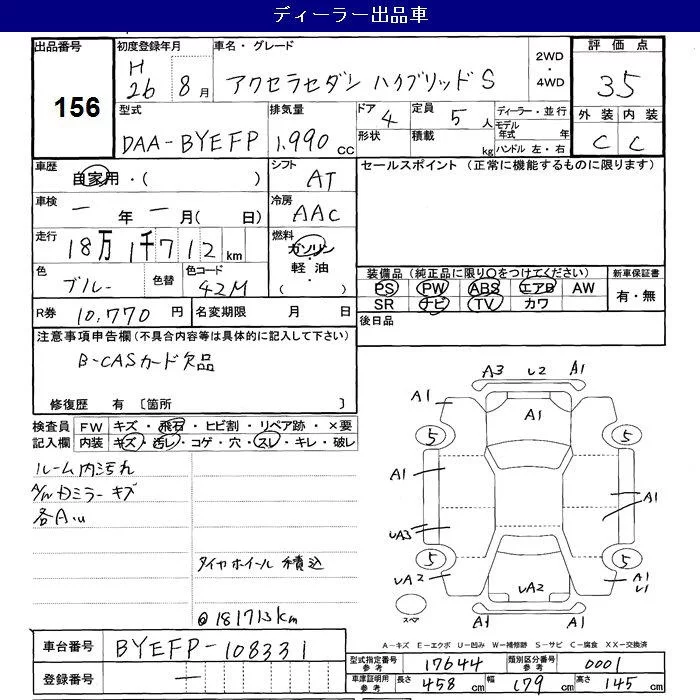 ディーラー出品車
出品番号 156
初度登録年月 H 26年 8月
車名・グレード アクセラセダン ハイブリッドS
2WD・4WD
評価点 3.5
外装 C 内装 C
型式 DAA-BYEFP
排気量 1,990 cc
ドア 4 定員 5人
形状 積載 kg
ディーラー・並行
モデル年式 年
ハンドル 左・右
車歴 自家用・( )
シフト AT
セールスポイント (正常に機能するものに限ります)
車検 ー年 ー月( 日)
冷房 AAC
走行 18万1千712km
燃料 ガソリン・軽油・( )
色 ブルー 色替 色コード 42M
装備品 (純正品に限り○をつけてください) 新車保証書
PS PW ABS エアB AW 有・無
SR ナビ TV カワ
R券 10,770円 名変期限 月 日
後日品
注意事項申告欄 (不具合内容等は具体的に記入して下さい)
B-CASカード欠品
修復歴 有 [箇所 ]
検査員記入欄 FW キズ・飛石・ヒビ割・リペア跡・×要
内装 キズ・汚レ・コゲ・穴・スレ・キレ・破レ
ルーム内汚れ
ドアミラー キズ
各A.u
タイヤホイール 積込
@181713km
A3 U2 A1
A1 A1 A1
5 5
A1 A1
UA3 A1
5 5
UA2 UA2 A1 U1
A1 A1
スペア
A－キズ E－エクボ U－凹み W－補修跡 S－サビ C－腐食 XX－交換済
車台番号 BYEFP-108331
登録番号 ー
型式指定番号 参考 17644 類別区分番号 参考 0001
車庫証明用 参考 長さ 458cm 幅 179cm 高さ 145cm